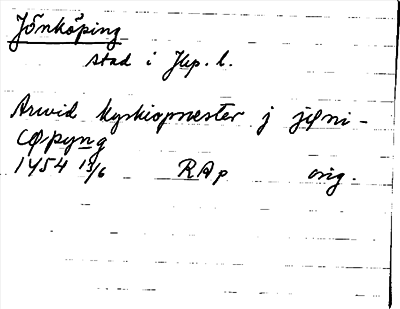 Jönköping
stad i Jkp. l.
Arvid kyrkiopræster j jøni-
cøpyng
1454 13/6 RAp orig.